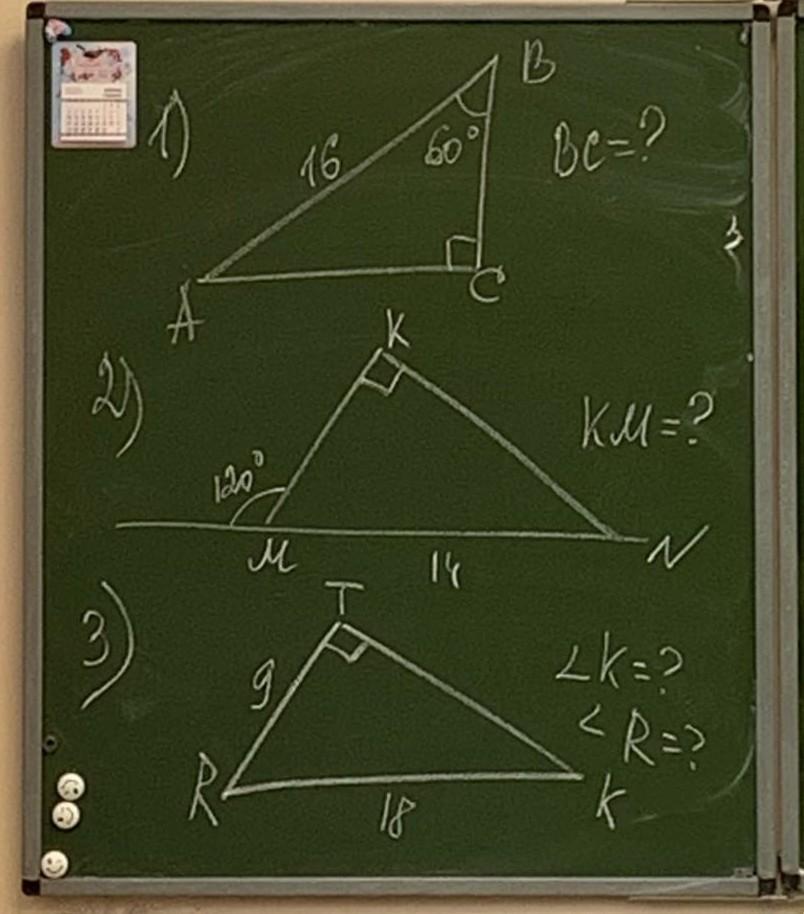 1)
B
16
60°
BC=?
A
C
2)
K
KM=?
120°
M
14
N
3)
T
9
<K=?
<R=?
R
18
K